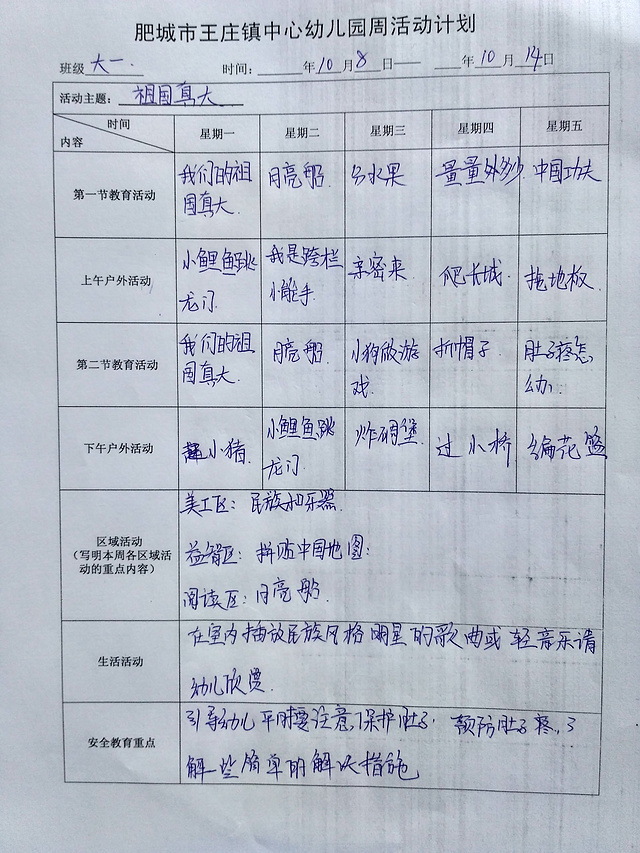 肥城市王庄镇中心幼儿园周活动计划
班级 大一. 时间: 年10月8日—— 年10月14日
活动主题: 祖国真大
时间 内容 星期一 星期二 星期三 星期四 星期五
第一节教育活动 我们的祖国真大. 月亮船. 分水果 量量外多少 中国功夫
上午户外活动 小鲤鱼跳龙门. 我是跨栏小能手. 亲密来. 爬长城. 拖地板.
第二节教育活动 我们的祖国真大. 月亮船. 小狗做游戏. 折帽子. 肚子疼怎么办:
下午户外活动 赶小猪. 小鲤鱼跳龙门. 炸碉堡. 过小桥 编花篮
区域活动
(写明本周各区域活
动的重点内容)
美工区: 民族和乐器.
益智区: 拼贴中国地图:
阅读区: 月亮船.
生活活动
在室内播放民族风格明星的歌曲或轻音乐请
幼儿欣赏.
安全教育重点
引导幼儿平时要注意保护肚子. 预防肚子疼. 了
解一些简单的解决措施